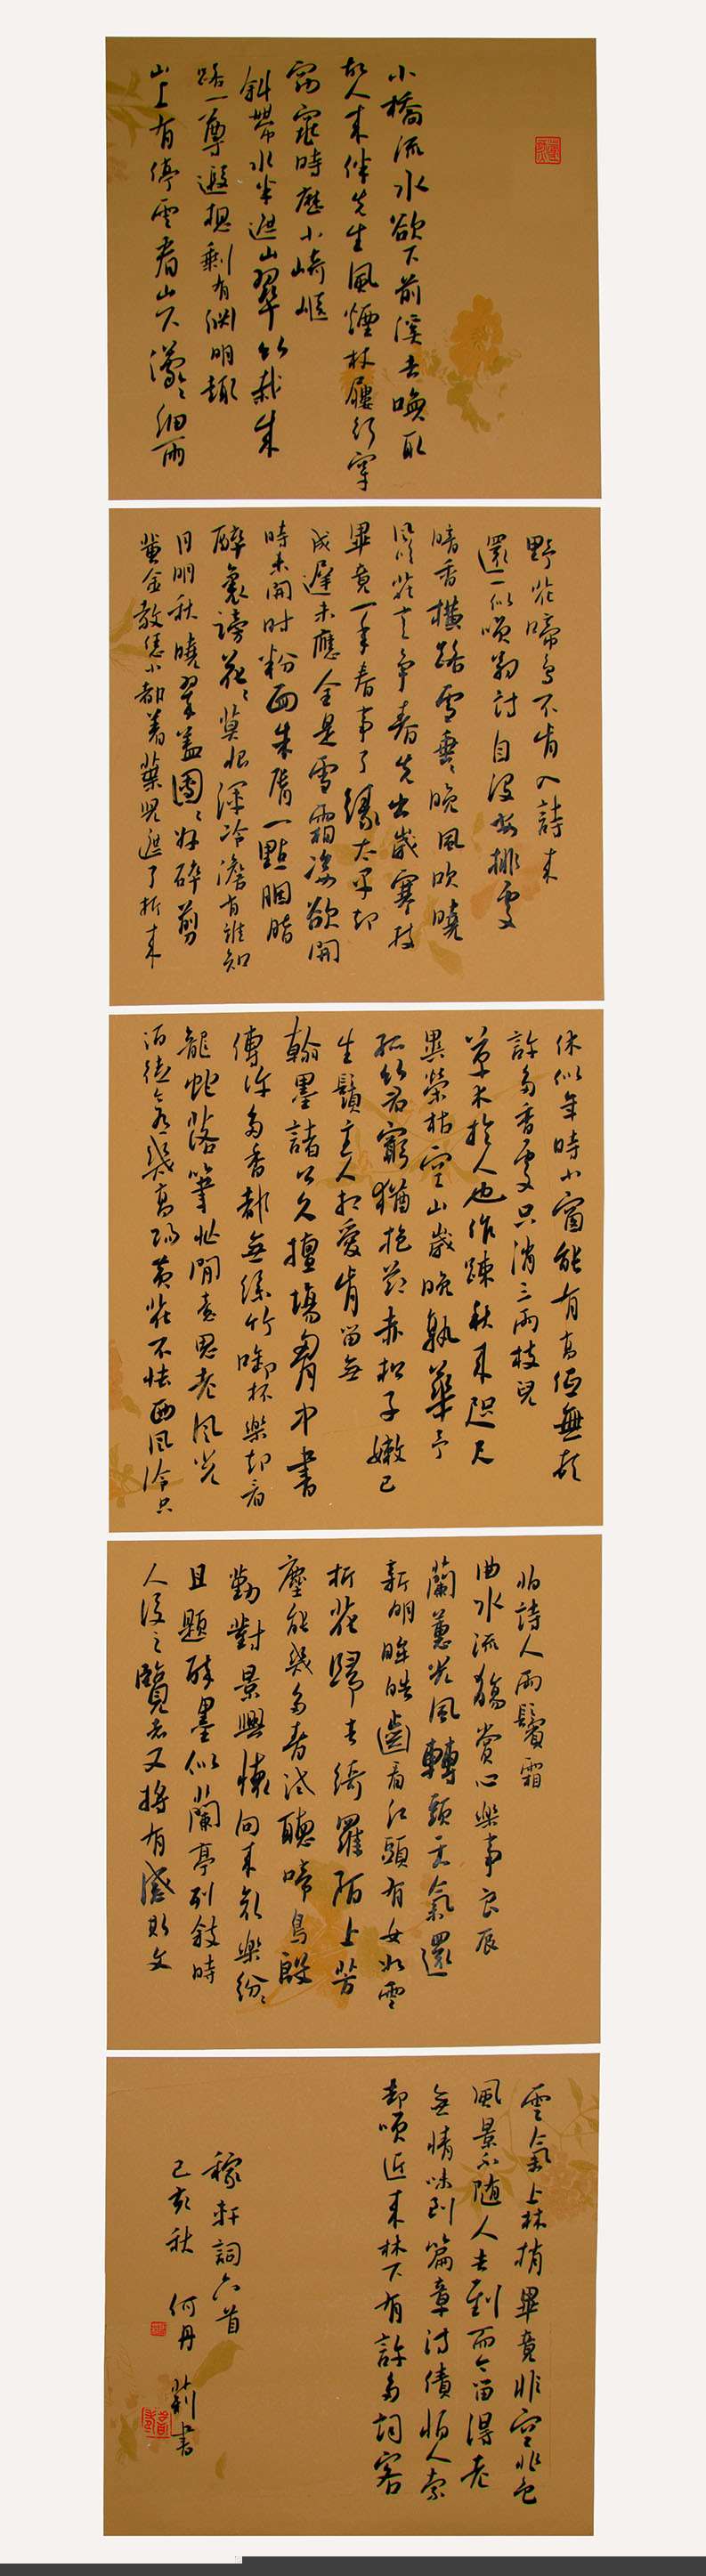 小橋流水欲下前溪去喚取
故人来伴先生風煙杖屨行穿
窈窕時歷小崎嶇
斜帶水半遮山翠竹栽成
路一尊遐想剩有淵明趣
山上有停雲看山下濛〻細雨
野花啼鳥不肯入詩来
還一似咲翁詩自沒安排處
暗香橫路雪垂〻晚風吹曉
風吹花意争春先出歲寒枝
畢竟一年春事了緣太早却
成遲未應全是雪霜姿欲開
時未開时粉面朱脣一點胭脂
醉裏謗花〻莫恨渾冷澹有誰知
月明秋曉翠蓋團〻好碎剪
黄金教恁小都著葉兒遮了折来
休似年時小窗能有高低無頓
許多香處只消三兩枝兒
草木於人也作疎秋来咫尺
異榮枯空山歲晚孰華予
孤竹君窮猶抱節赤松子嫩已
生鬚主人相愛肯留無
翰墨諸公久擅場胸中書
傳許多香都無絲竹啣杯樂却看
龍蛇落筆忙閒意思老風光
酒徒今有幾高陽黄花不怯西風冷只
怕詩人兩鬢霜
曲水流觴賞心樂事良辰
蘭蕙光風轉頭天氣還
新明眸皓齒看江頭有女如雲
折花歸去綺羅陌上芳
塵能幾多春試聽啼鳥殷
勤對景興懷向来哀樂紛〻
且題醉墨似蘭亭列敘時
人後之覽者又将有感斯文
雲氣上林梢畢竟非空非色
風景不隨人去到而今留得老
無情味到篇章詩債怕人索
却咲近来林下有許多詞客
稼軒詞六首
己亥秋 何丹荊書